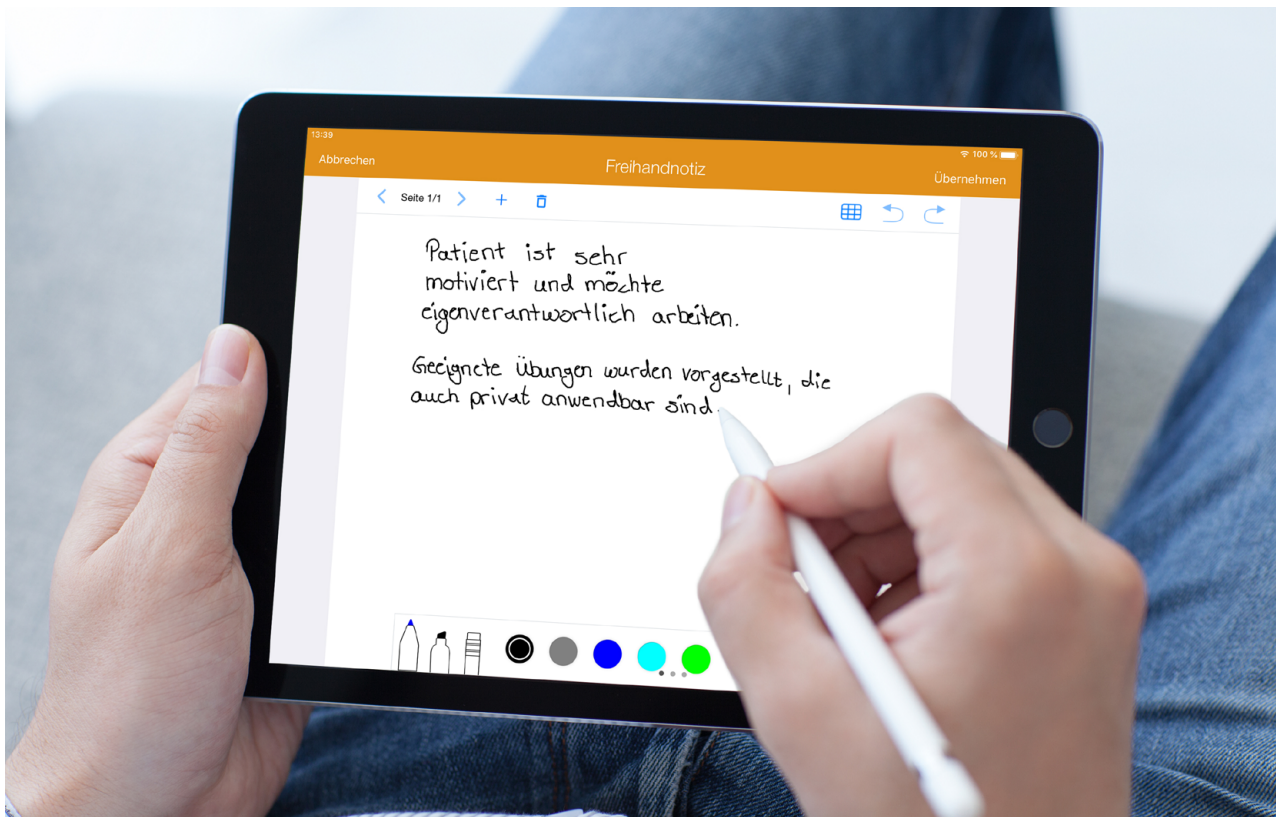 13:39
100 %
Abbrechen
Freihandnotiz
Übernehmen
Seite 1/1
Patient ist sehr
motiviert und möchte
eigenverantwortlich arbeiten.
Geeignete Übungen wurden vorgestellt, die
auch privat anwendbar sind.